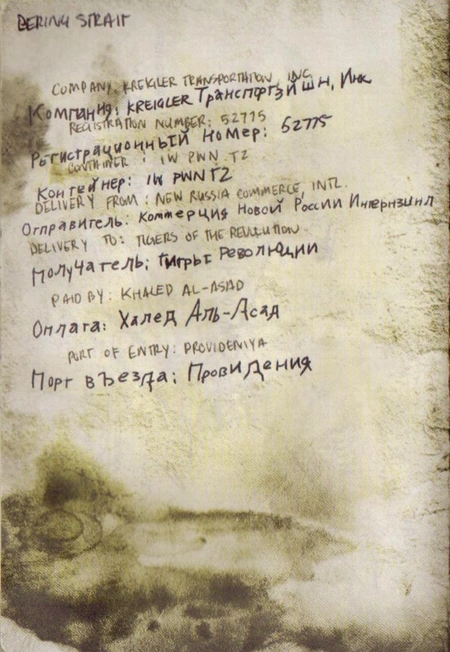 BERING STRAIT
COMPANY: KREIGLER TRANSPORTATION, INC
Компания: KREIGLER Транспортэйшн, Инк
REGISTRATION NUMBER: 52775
Регистрационный номер: 52775
CONTAINER: IW PWN TZ
Контейнер: IW PWNTZ
DELIVERY FROM: NEW RUSSIA COMMERCE, INTL.
Отправитель: Коммерция Новой России Интернэшнл
DELIVERY TO: TIGERS OF THE REVOLUTION
Получатель: Тигры Революции
PAID BY: KHALED AL-ASAD
Оплата: Халед Аль-Асад
PORT OF ENTRY: PROVIDENIYA
Порт въезда: Провидения